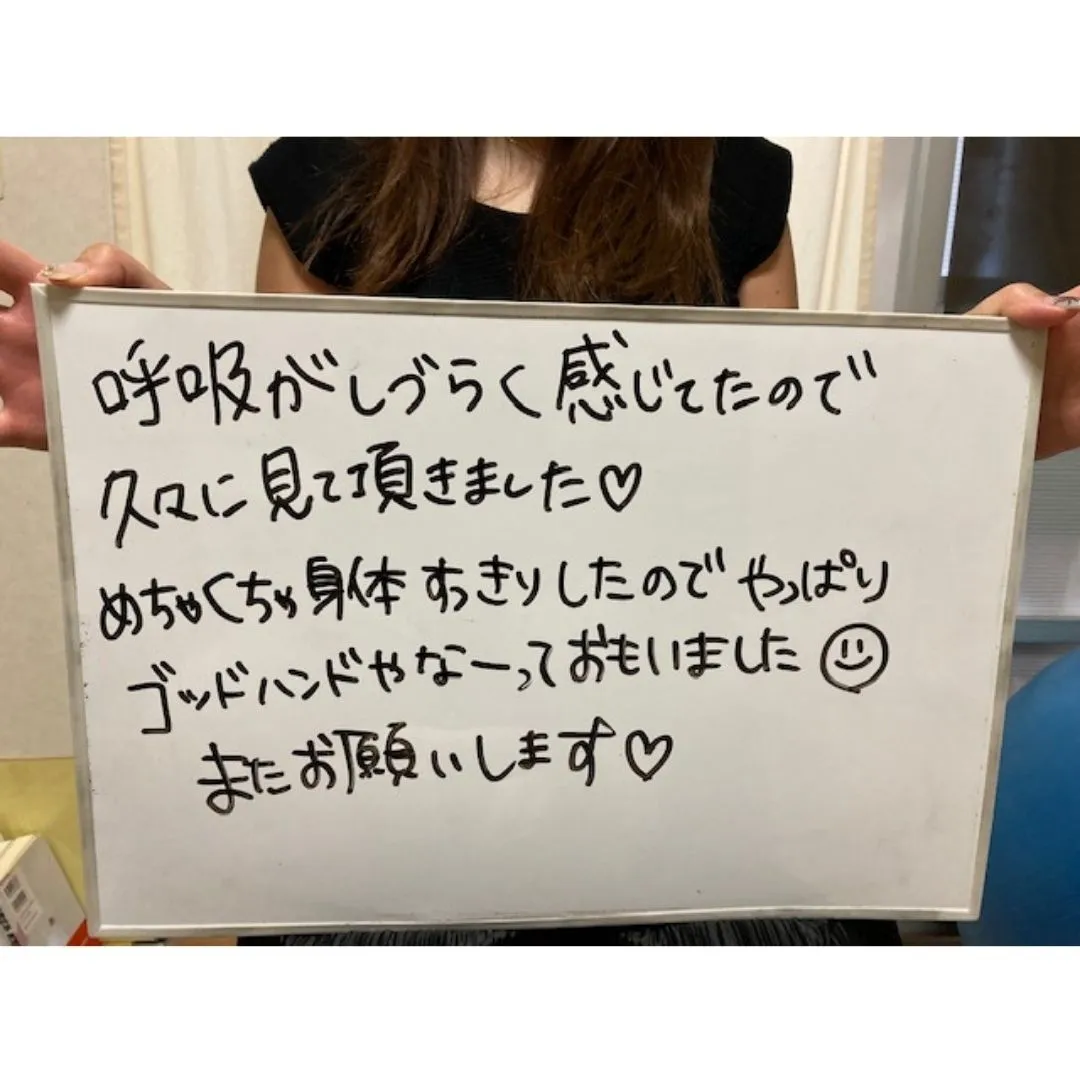 呼吸がしづらく感じてたので
久々に見て頂きました♡
めちゃくちゃ身体すっきりしたのでやっぱり
ゴッドハンドやなーっておもいました☺
またお願いします♡